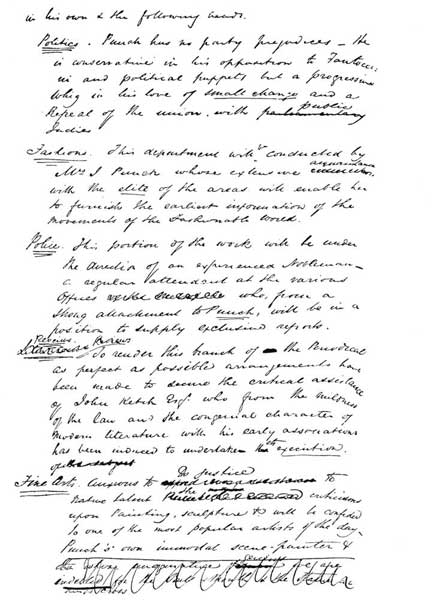 in his own & the following heads.
Politics. Punch has no party prejudices — He
is conservative in his opposition to Fantocci
ni and political puppets but a progressive
whig in his love of small change and a
Repeal of the union, with public
Indies
Fashions. This department will conducted by
Mrs J Punch whose extensive acquaintance
with the elite of the areas will enable her
to furnish the earliest information of the
movements of the Fashionable World.
Police. This portion of the work will be under
the direction of an experienced Nobleman —
a regular attendant at the various
Offices who, from a
strong attachment to Punch, will be in a
position to supply exclusive reports.
Reviews.
To render this branch of the Periodical
as perfect as possible arrangements have
been made to secure the critical assistance
of John Ketch Esqr. who from the mildness
of the law and the congenial character of
modern literature with his early associations
has been induced to undertake its execution.
Fine Arts. Anxious to Do justice to
native talent the criticisms
upon Painting, sculpture &c will be confided
to one of the most popular artists of the day —
Punch's own immortal scene-painter &